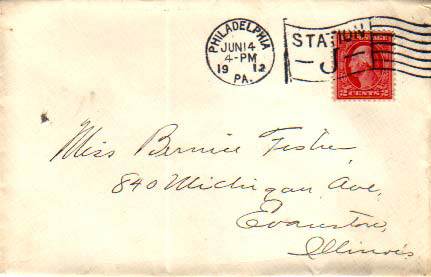 PHILADELPHIA
JUN 14
4-PM
1912
PA.
STATION
J
2 CENTS 2
Miss Bernice Fisher
840 Michigan Ave,
Evanston,
Illinois